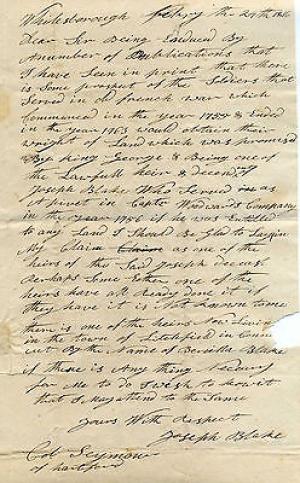 Whitesborough Febry the 24th
Dear Sir Being Enduced By
A number of Publications that
I have Seen in print that there
is Some prospect of the Soldiers that
Served in old french war which
Commenced in the year 1755 & Ended
in the year 1763 would obtain their
wright of Land which was promised
By king George & Being one of
the Lawfull heir & decend
Joseph Blake Who Served in as
A pivet in Capt Woodwards Company
in the year 1756 if he was Entitled
to any Land I Should Be Glad to Lay in
My Claim Claim as one of the
heirs of the Sad Joseph deceasd
Perhaps Some Other one of the
heirs have all Ready done it if
they have it is Not known to me
there is one of the heirs Now Living
in the town of Litchfield in Connec
ticut By the Name of Blake
if there is Any thing Necessary
for Me to do I wish to know it
that I May attend to the Same
Yours With Respect
Joseph Blake
Col Seymour
of hartford